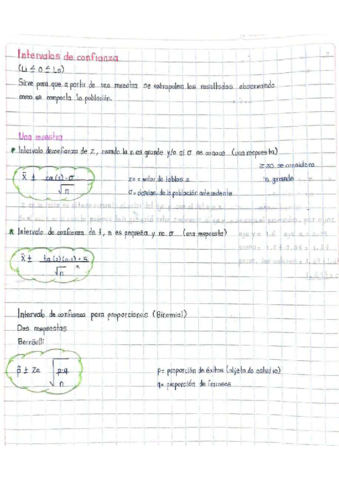 Intervalos de confianza
(Li ≤ θ ≤ Ls)
Sirve para que a partir de una muestra se extrapolen los resultados observando
como se comporta la población.
Una muestra
* Intervalo de confianza de z, cuando la n es grande y/o si σ es conocida (una respuesta)
≥30 se considera
n grande
x̄ ± zα(s)·σ
√n
zα = valor de tablas z
σ = desviac. de la población
* Intervalo de confianza de t, n es pequeña y no σ (una respuesta)
x̄ ± tα(s)(n-1)·s
√n
Intervalo de confianza para proporciones (Binomial)
Dos respuestas
Bernoulli
p̂ ± Zα √p·q
n
p = proporción de éxitos (objeto de estudio)
q = proporción de fracasos